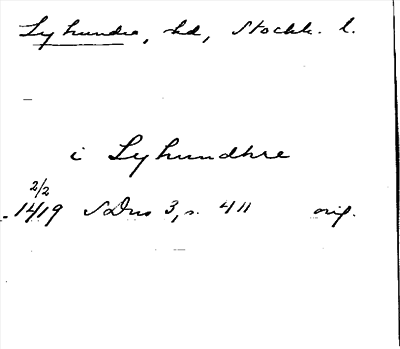 Lyhundra, hd, Stockh. l.
i Lyhundhre
2/2
1419 SDns 3, s. 411 orig.